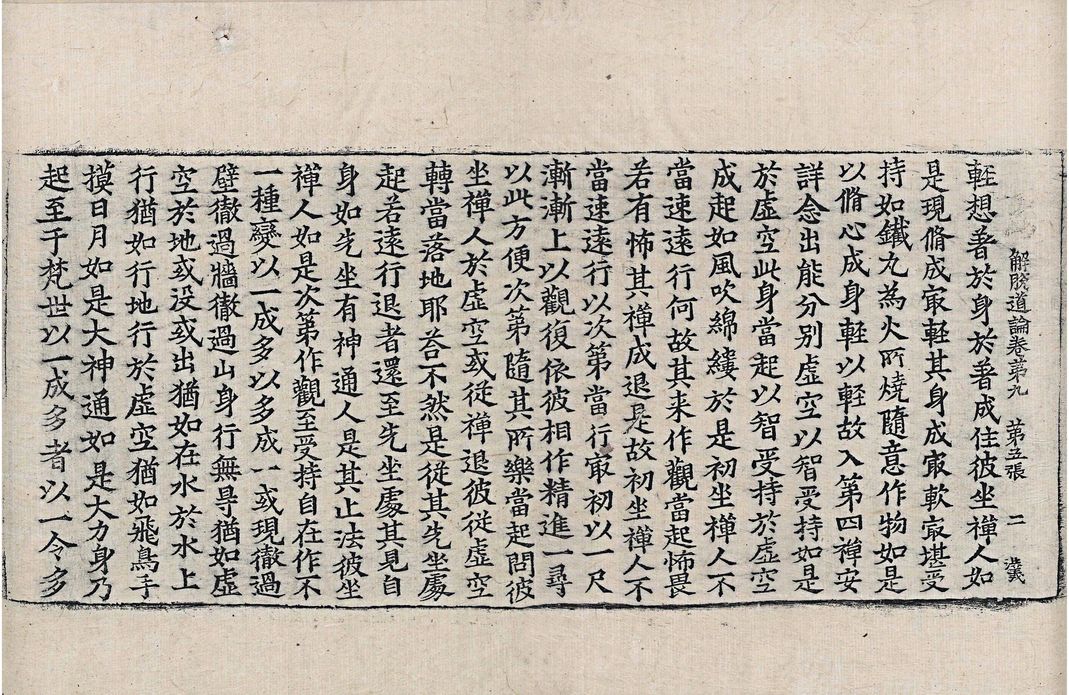 解脫道論卷第九　第五張　二
輊想著於身於著成住彼坐禪人如
是現脩成㝡輊其身成㝡軟㝡堪受
持如鐵丸為火所燒隨意作物如是
以脩心成身輊以輊故入第四禪安
詳念出能分別虛空以智受持如是
於虛空此身當起以智受持於虛空
成起如風吹綿縷於是初坐禪人不
當速遠行何故其来作觀當起怖畏
若有怖其禪成退是故初坐禪人不
當速遠行以次第當行㝡初以一尺
漸漸上以觀復依彼相作精進一尋
以此方便次第隨其所樂當起問彼
坐禪人於虛空或從禪退彼從虛空
轉當落地耶荅不然是從其先坐處
起若遠行退者還至先坐處其見自
身如先坐有神通人是其止法彼坐
禪人如是次第作觀至受持自在作不
一種變以一成多以多成一或現徹過
壁徹過牆徹過山身行無㝵猶如虛
空於地或没或出猶如在水於水上
行猶如行地行於虛空猶如飛鳥手
摸日月如是大神通如是大力身乃
起至于梵世以一成多者以一令多